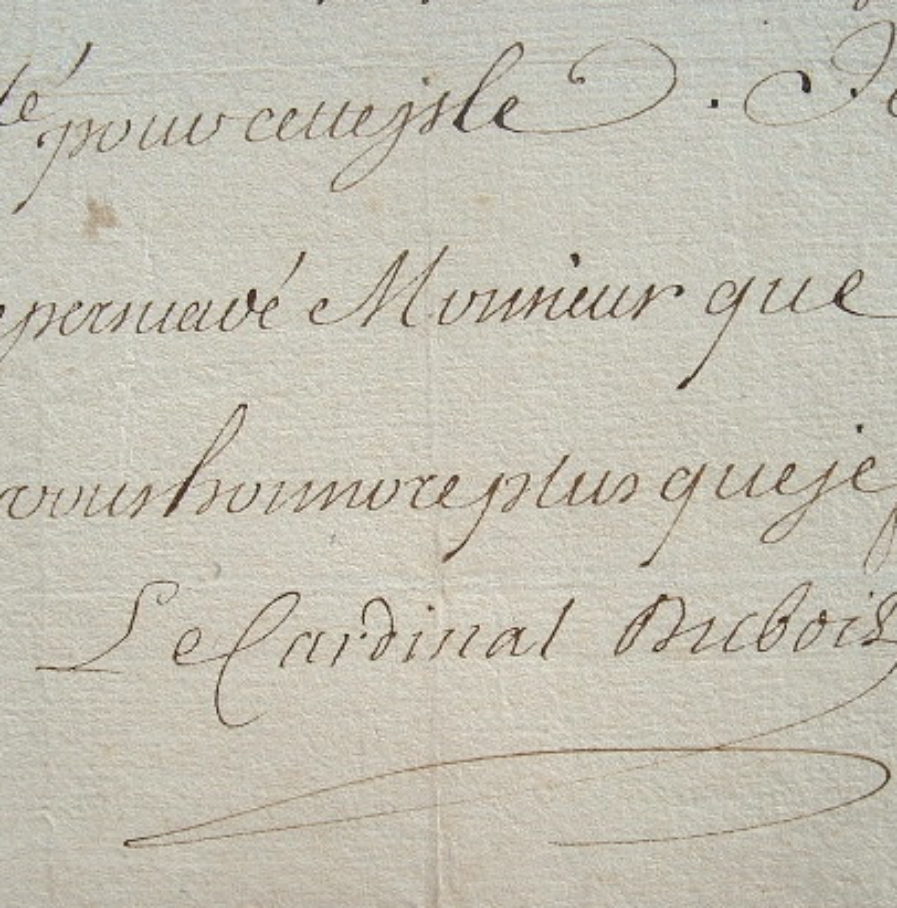 té pour cette jsle . Je
persuadé Monsieur que
vous honnore plus que je
Le Cardinal Dubois